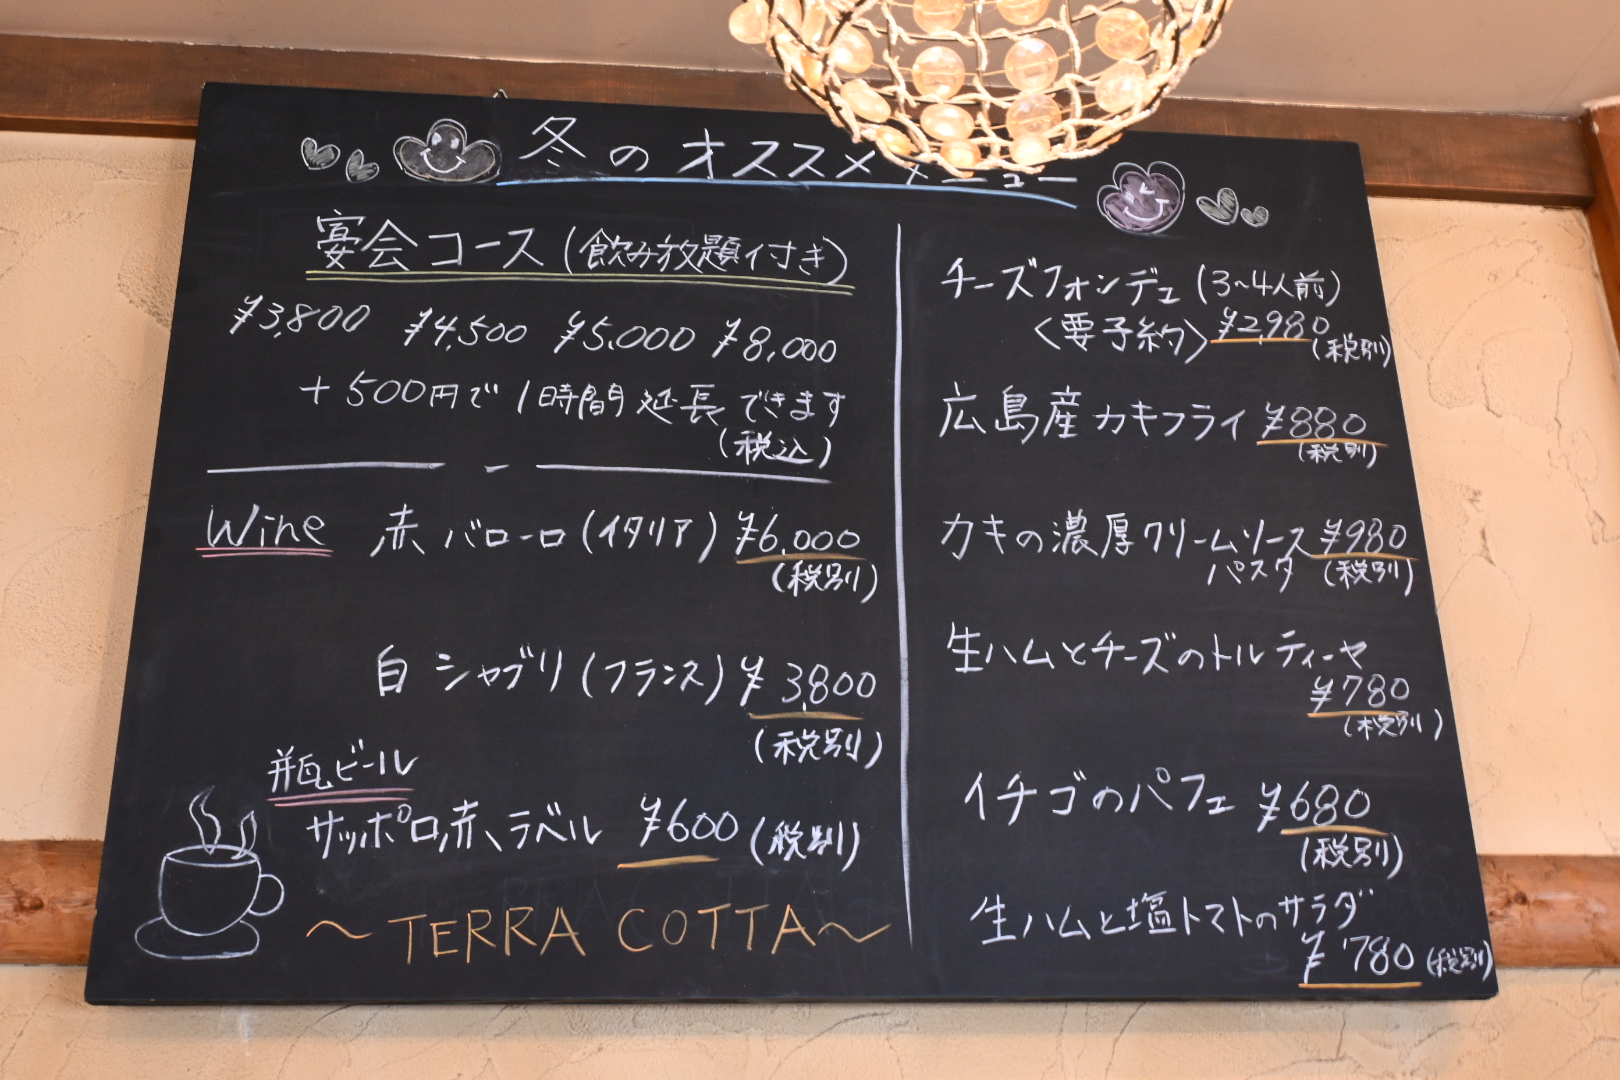 冬のオススメメニュー
宴会コース(飲み放題付き)
¥3,800 ¥4,500 ¥5,000 ¥8,000
+500円で1時間延長できます
(税込)
Wine 赤 バローロ(イタリア) ¥6,000
(税別)
白 シャブリ(フランス) ¥3,800
(税別)
瓶ビール
サッポロ赤ラベル ¥600 (税別)
~TERRA COTTA~
チーズフォンデュ(3~4人前)
<要予約> ¥2,980
(税別)
広島産カキフライ ¥880
(税別)
カキの濃厚クリームソース ¥980
パスタ (税別)
生ハムとチーズのトルティーヤ
¥780
(税別)
イチゴのパフェ ¥680
(税別)
生ハムと塩トマトのサラダ
¥780 (税別)